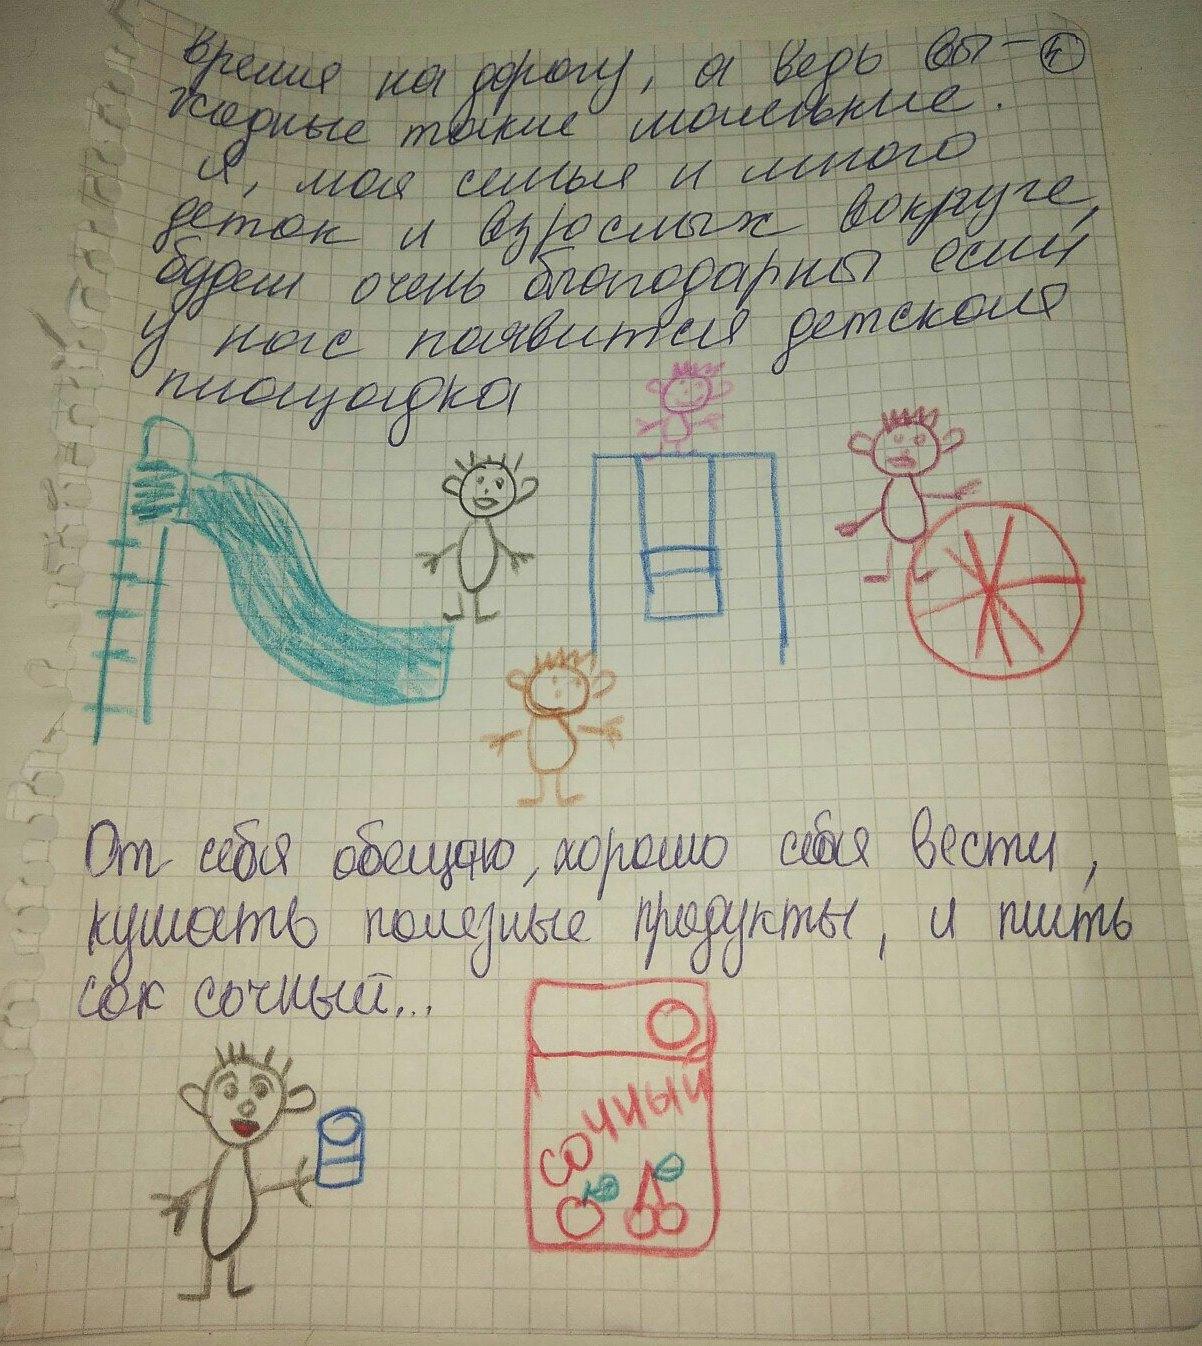 время на дорогу, а ведь вы- 4
ходные такие маленькие.
Я, моя семья и много
деток и взрослых вокруге,
будем очень благодарны если
у нас появится детская
площадка
От себя обещаю, хорошо себя вести,
кушать полезные продукты, и пить
сок сочный...
сочный